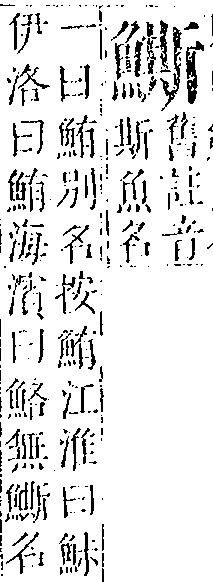 䲉舊註音
斯魚名
一曰鮪别名按鮪江淮曰鮇
伊洛曰鮪海濱曰鮥無䲉名